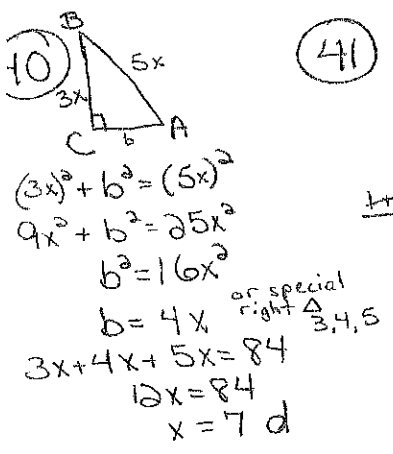 40
41
B
5x
3x
C
b
A
(3x)² + b² = (5x)²
9x² + b² = 25x²
b² = 16x²
b = 4x
or special
right △
3,4,5
3x+4x+5x=84
12x=84
x=7 d